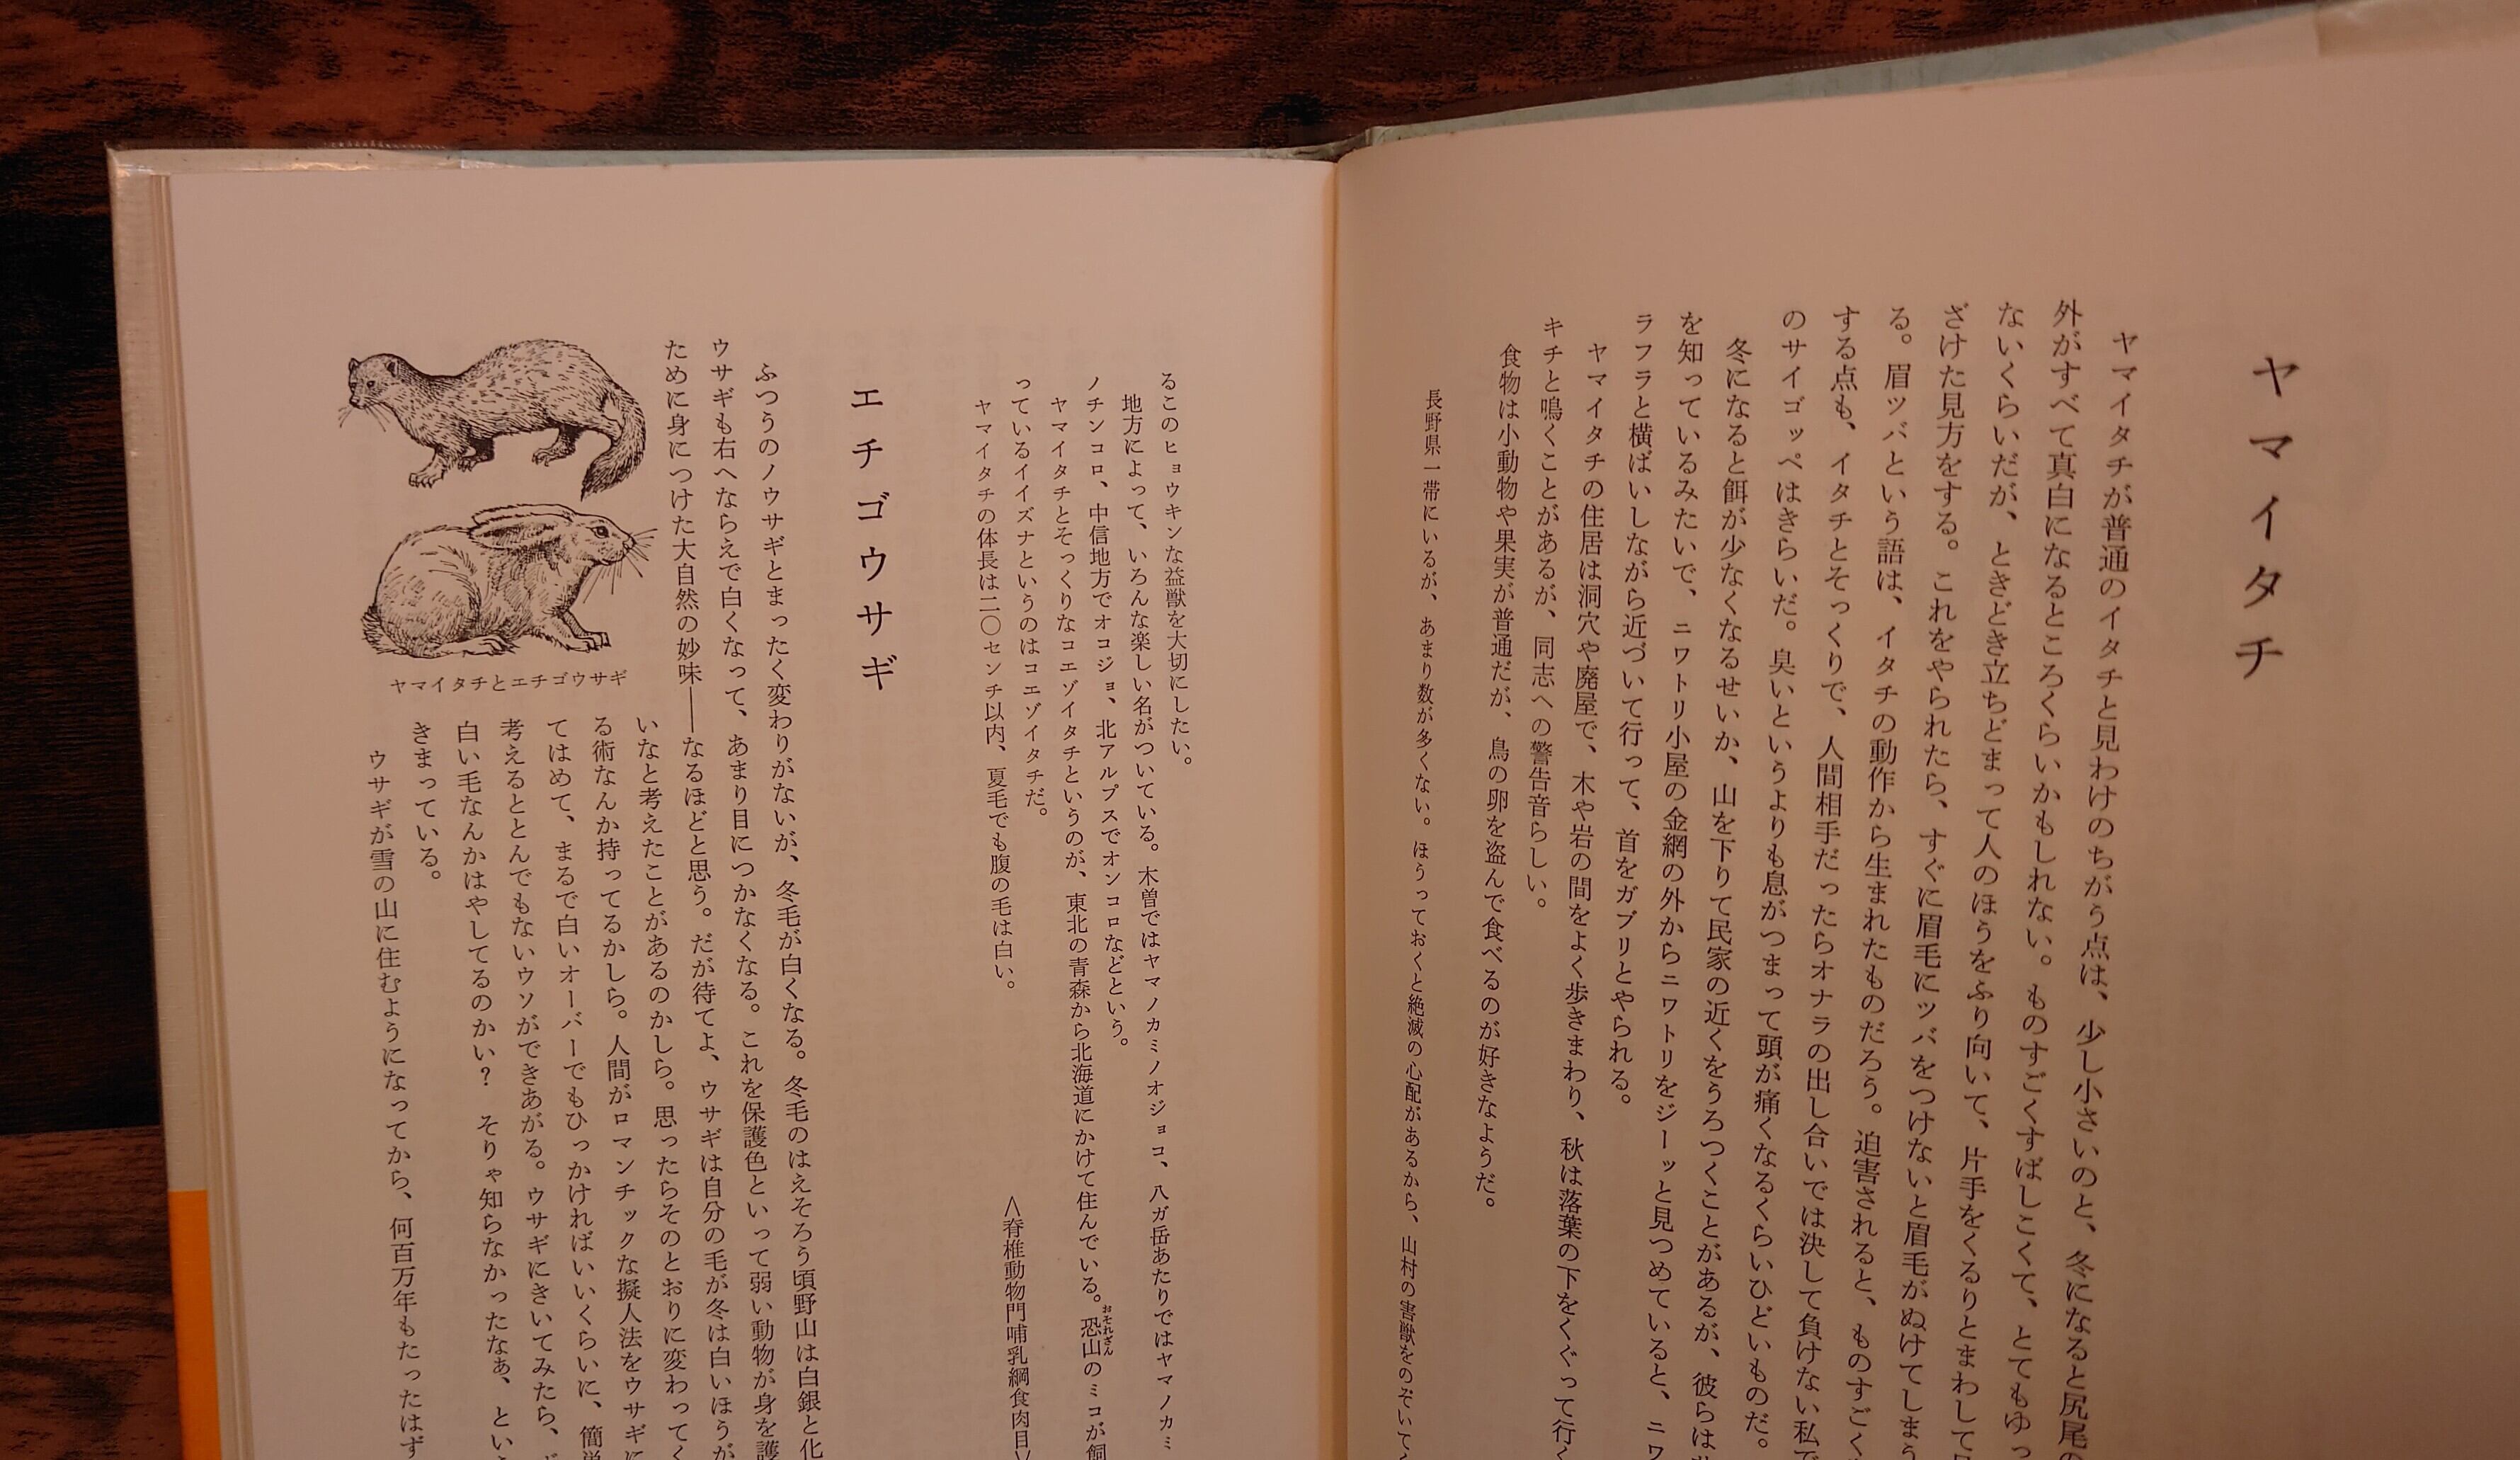 ヤマイタチ
ヤマイタチが普通のイタチと見わけのちがう点は、少し小さいのと、冬になると尻尾の
外がすべて真白になるところくらいかもしれない。ものすごくすばしこくて、とてもゆっ
ないくらいだが、ときどき立ちどまって人のほうをふり向いて、片手をくるりとまわして
ざけた見方をする。これをやられたら、すぐに眉毛にツバをつけないと眉毛がぬけてしまう
る。眉ツバという語は、イタチの動作から生まれたものだろう。迫害されると、ものすごく
する点も、イタチとそっくりで、人間相手だったらオナラの出し合いでは決して負けない私で
のサイゴッペはきらいだ。臭いというよりも息がつまって頭が痛くなるくらいひどいものだ。
冬になると餌が少なくなるせいか、山を下りて民家の近くをうろつくことがあるが、彼らは
を知っているみたいで、ニワトリ小屋の金網の外からニワトリをジーッと見つめていると、ニワ
ラフラと横ばいしながら近づいて行って、首をガブリとやられる。
ヤマイタチの住居は洞穴や廃屋で、木や岩の間をよく歩きまわり、秋は落葉の下をくぐって行く
キチと鳴くことがあるが、同志への警告音らしい。
食物は小動物や果実が普通だが、鳥の卵を盗んで食べるのが好きなようだ。
長野県一帯にいるが、あまり数が多くない。ほうっておくと絶滅の心配があるから、山村の害獣をのぞいてく
るこのヒョウキンな益獣を大切にしたい。
地方によって、いろんな楽しい名がついている。木曽ではヤマノカミノオジョコ、八ガ岳あたりではヤマノカミ
ノチンコロ、中信地方でオコジョ、北アルプスでオンコロなどという。
ヤマイタチとそっくりなコエゾイタチというのが、東北の青森から北海道にかけて住んでいる。恐山おそれざんのミコが飼
っているイイズナというのはコエゾイタチだ。
ヤマイタチの体長は二〇センチ以内、夏毛でも腹の毛は白い。
〈脊椎動物門哺乳綱食肉目〉
エチゴウサギ
ふつうのノウサギとまったく変わりがないが、冬毛が白くなる。冬毛のはえそろう頃野山は白銀と化
ウサギも右へならえで白くなって、あまり目につかなくなる。これを保護色といって弱い動物が身を護
ために身につけた大自然の妙味――なるほどと思う。だが待てよ、ウサギは自分の毛が冬は白いほうが
いなと考えたことがあるのかしら。思ったらそのとおりに変わってく
る術なんか持ってるかしら。人間がロマンチックな擬人法をウサギに
てはめて、まるで白いオーバーでもひっかければいいくらいに、簡単
考えるととんでもないウソができあがる。ウサギにきいてみたら、
白い毛なんかはやしてるのかい？　そりゃ知らなかったなぁ、とい
きまっている。
ウサギが雪の山に住むようになってから、何百万年もたったはず
ヤマイタチとエチゴウサギ